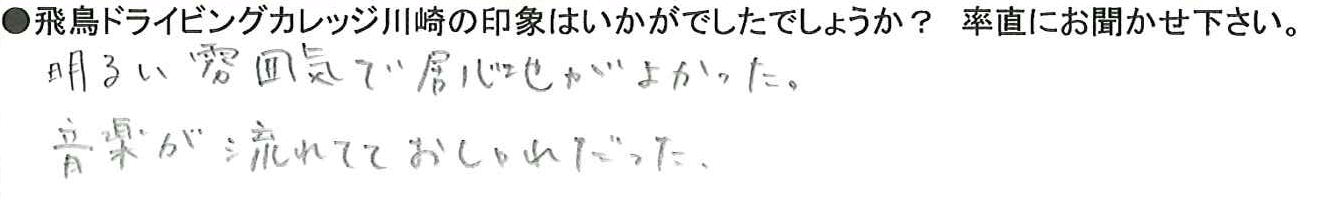 ●飛鳥ドライビングカレッジ川崎の印象はいかがでしたでしょうか？ 率直にお聞かせ下さい。
明るい雰囲気で居心地がよかった。
音楽が流れてておしゃれだった、